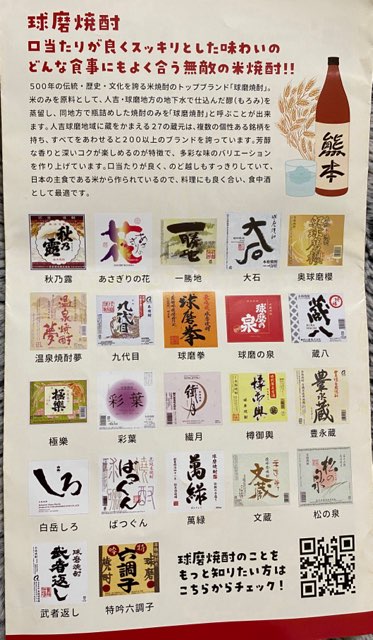 球磨焼酎
口当たりが良くスッキリとした味わいの
どんな食事にもよく合う無敵の米焼酎!!
500年の伝統・歴史・文化を誇る米焼酎のトップブランド「球磨焼酎」。
米のみを原料として、人吉・球磨地方の地下水で仕込んだ醪(もろみ)を
蒸留し、同地方で瓶詰めした焼酎のみを「球磨焼酎」と呼ぶことが出来
ます。人吉球磨地域に蔵をかまえる27の蔵元は、複数の個性ある銘柄を
持ち、すべてをあわせると200以上のブランドを誇っています。芳醇
な香りと深いコクが楽しめるのが特徴で、多彩な味のバリエーション
を作り上げています。口当たりが良く、のど越しもすっきりしていて、
日本の主食である米から作られているので、料理にも良く合い、食中酒
として最適です。
熊本
秋乃露
花
一勝地
大石
秋乃露 あさぎりの花 一勝地 大石 奥球磨櫻
温泉焼酎
夢
九代目
球磨拳
球磨の泉
蔵八
温泉焼酎夢 九代目 球磨拳 球磨の泉 蔵八
極楽
彩葉
繊月
樽御輿
豊永蔵
極樂 彩葉 繊月 樽御輿 豊永蔵
しろ
ばつぐん
萬緑
文蔵
松の泉
白岳しろ ばつぐん 萬緑 文蔵 松の泉
球磨焼酎
武者返し
六調子
武者返し 特吟六調子
球磨焼酎のことを
もっと知りたい方は
こちらからチェック!